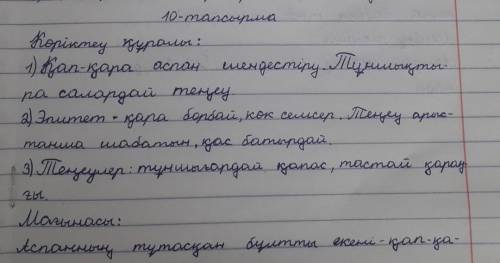 10-тапсырма
Көріктеу құралы:
1) Қап-қара аспан шендестіру. Тұншықты-
ра салардай теңеу
2) Эпитет - қара борбай, көк семсер. Теңеу арыс-
танша шабатын, қас батырдай.
3) Теңеулер: тұншығардай қапас, тастай қараң
ғы.
Мағынасы:
Аспанның тұтасқан бұлтты екені - қап-қа-